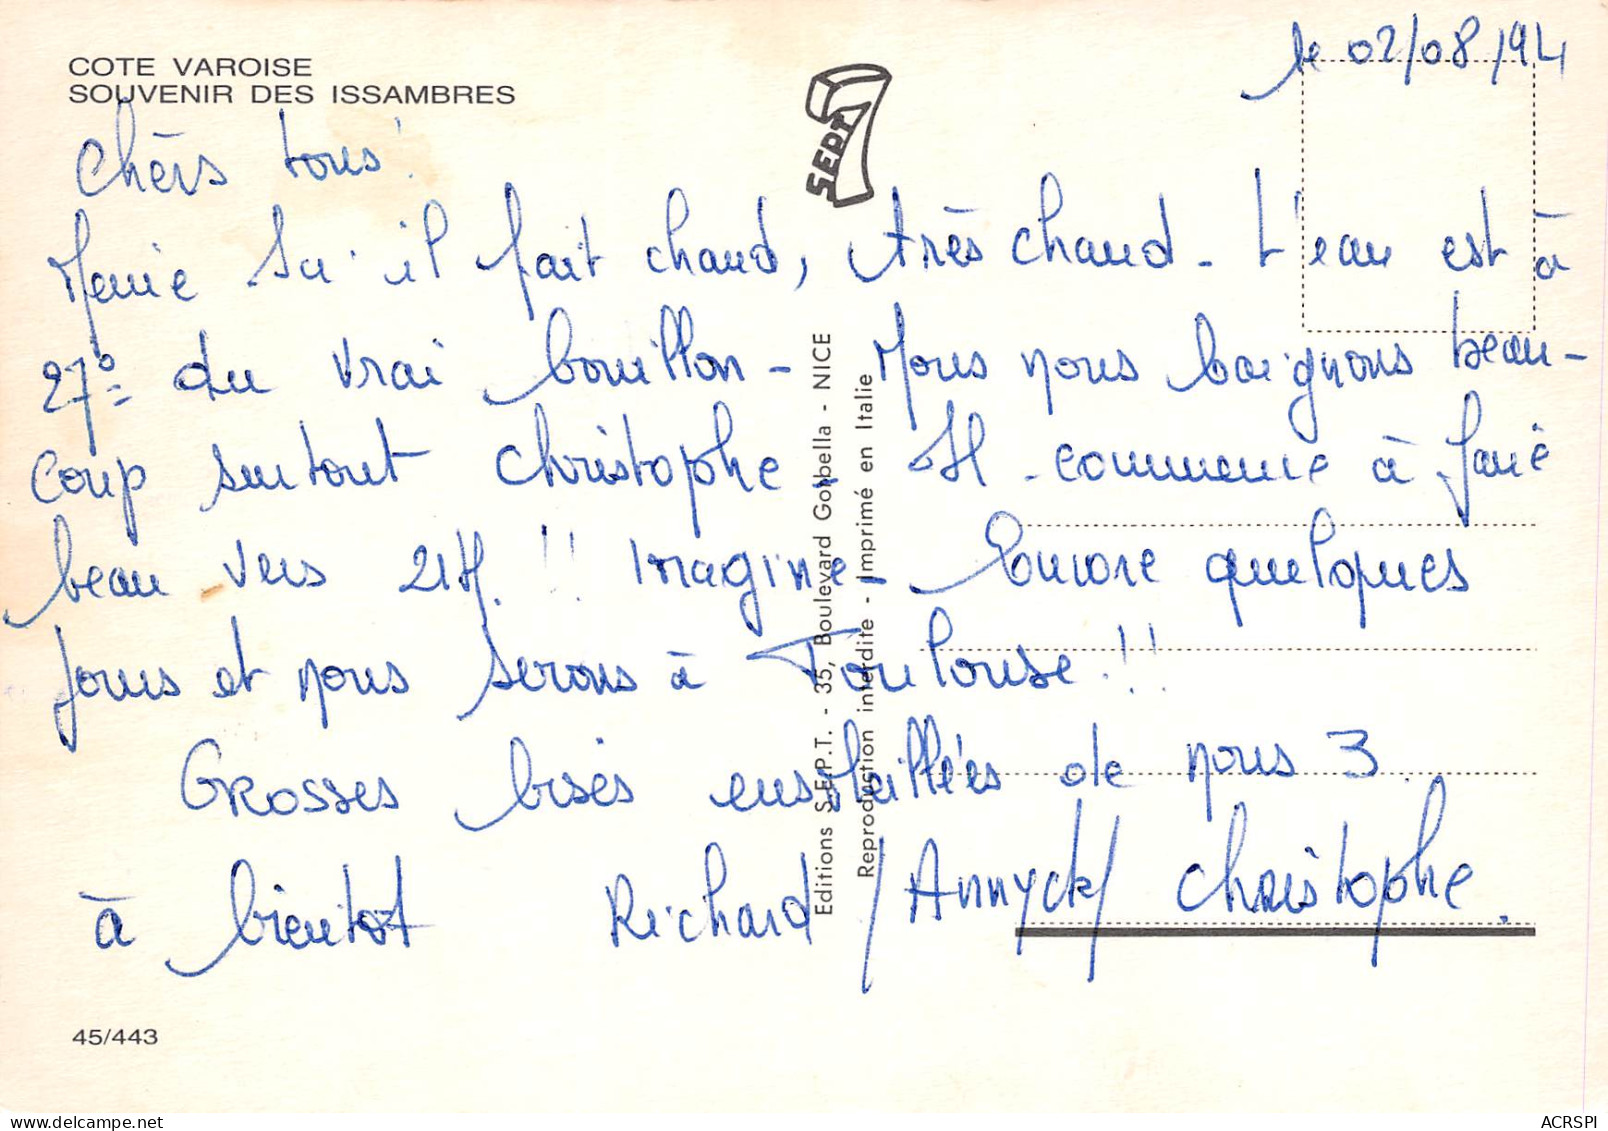 COTE VAROISE
SOUVENIR DES ISSAMBRES
le 02/08/94
SEPT 7
Chèrs tous!
Même Ici il fait chaud, très chaud - L'eau est à
27°= du vrai bouillon - Nous nous baignons beau-
coup surtout Christophe - Il commence à faire
beau vers 21H. !! Imagine - Encore quelques
jours et nous serons à Toulouse !!
GROSSES bises ensoleillées de nous 3.
à bientôt Richard / Annyck / Christophe.
Editions S.E.P.T. - 35, Boulevard Gorbella - NICE
Reproduction interdite - Imprimé en Italie
45/443
ACRSPI